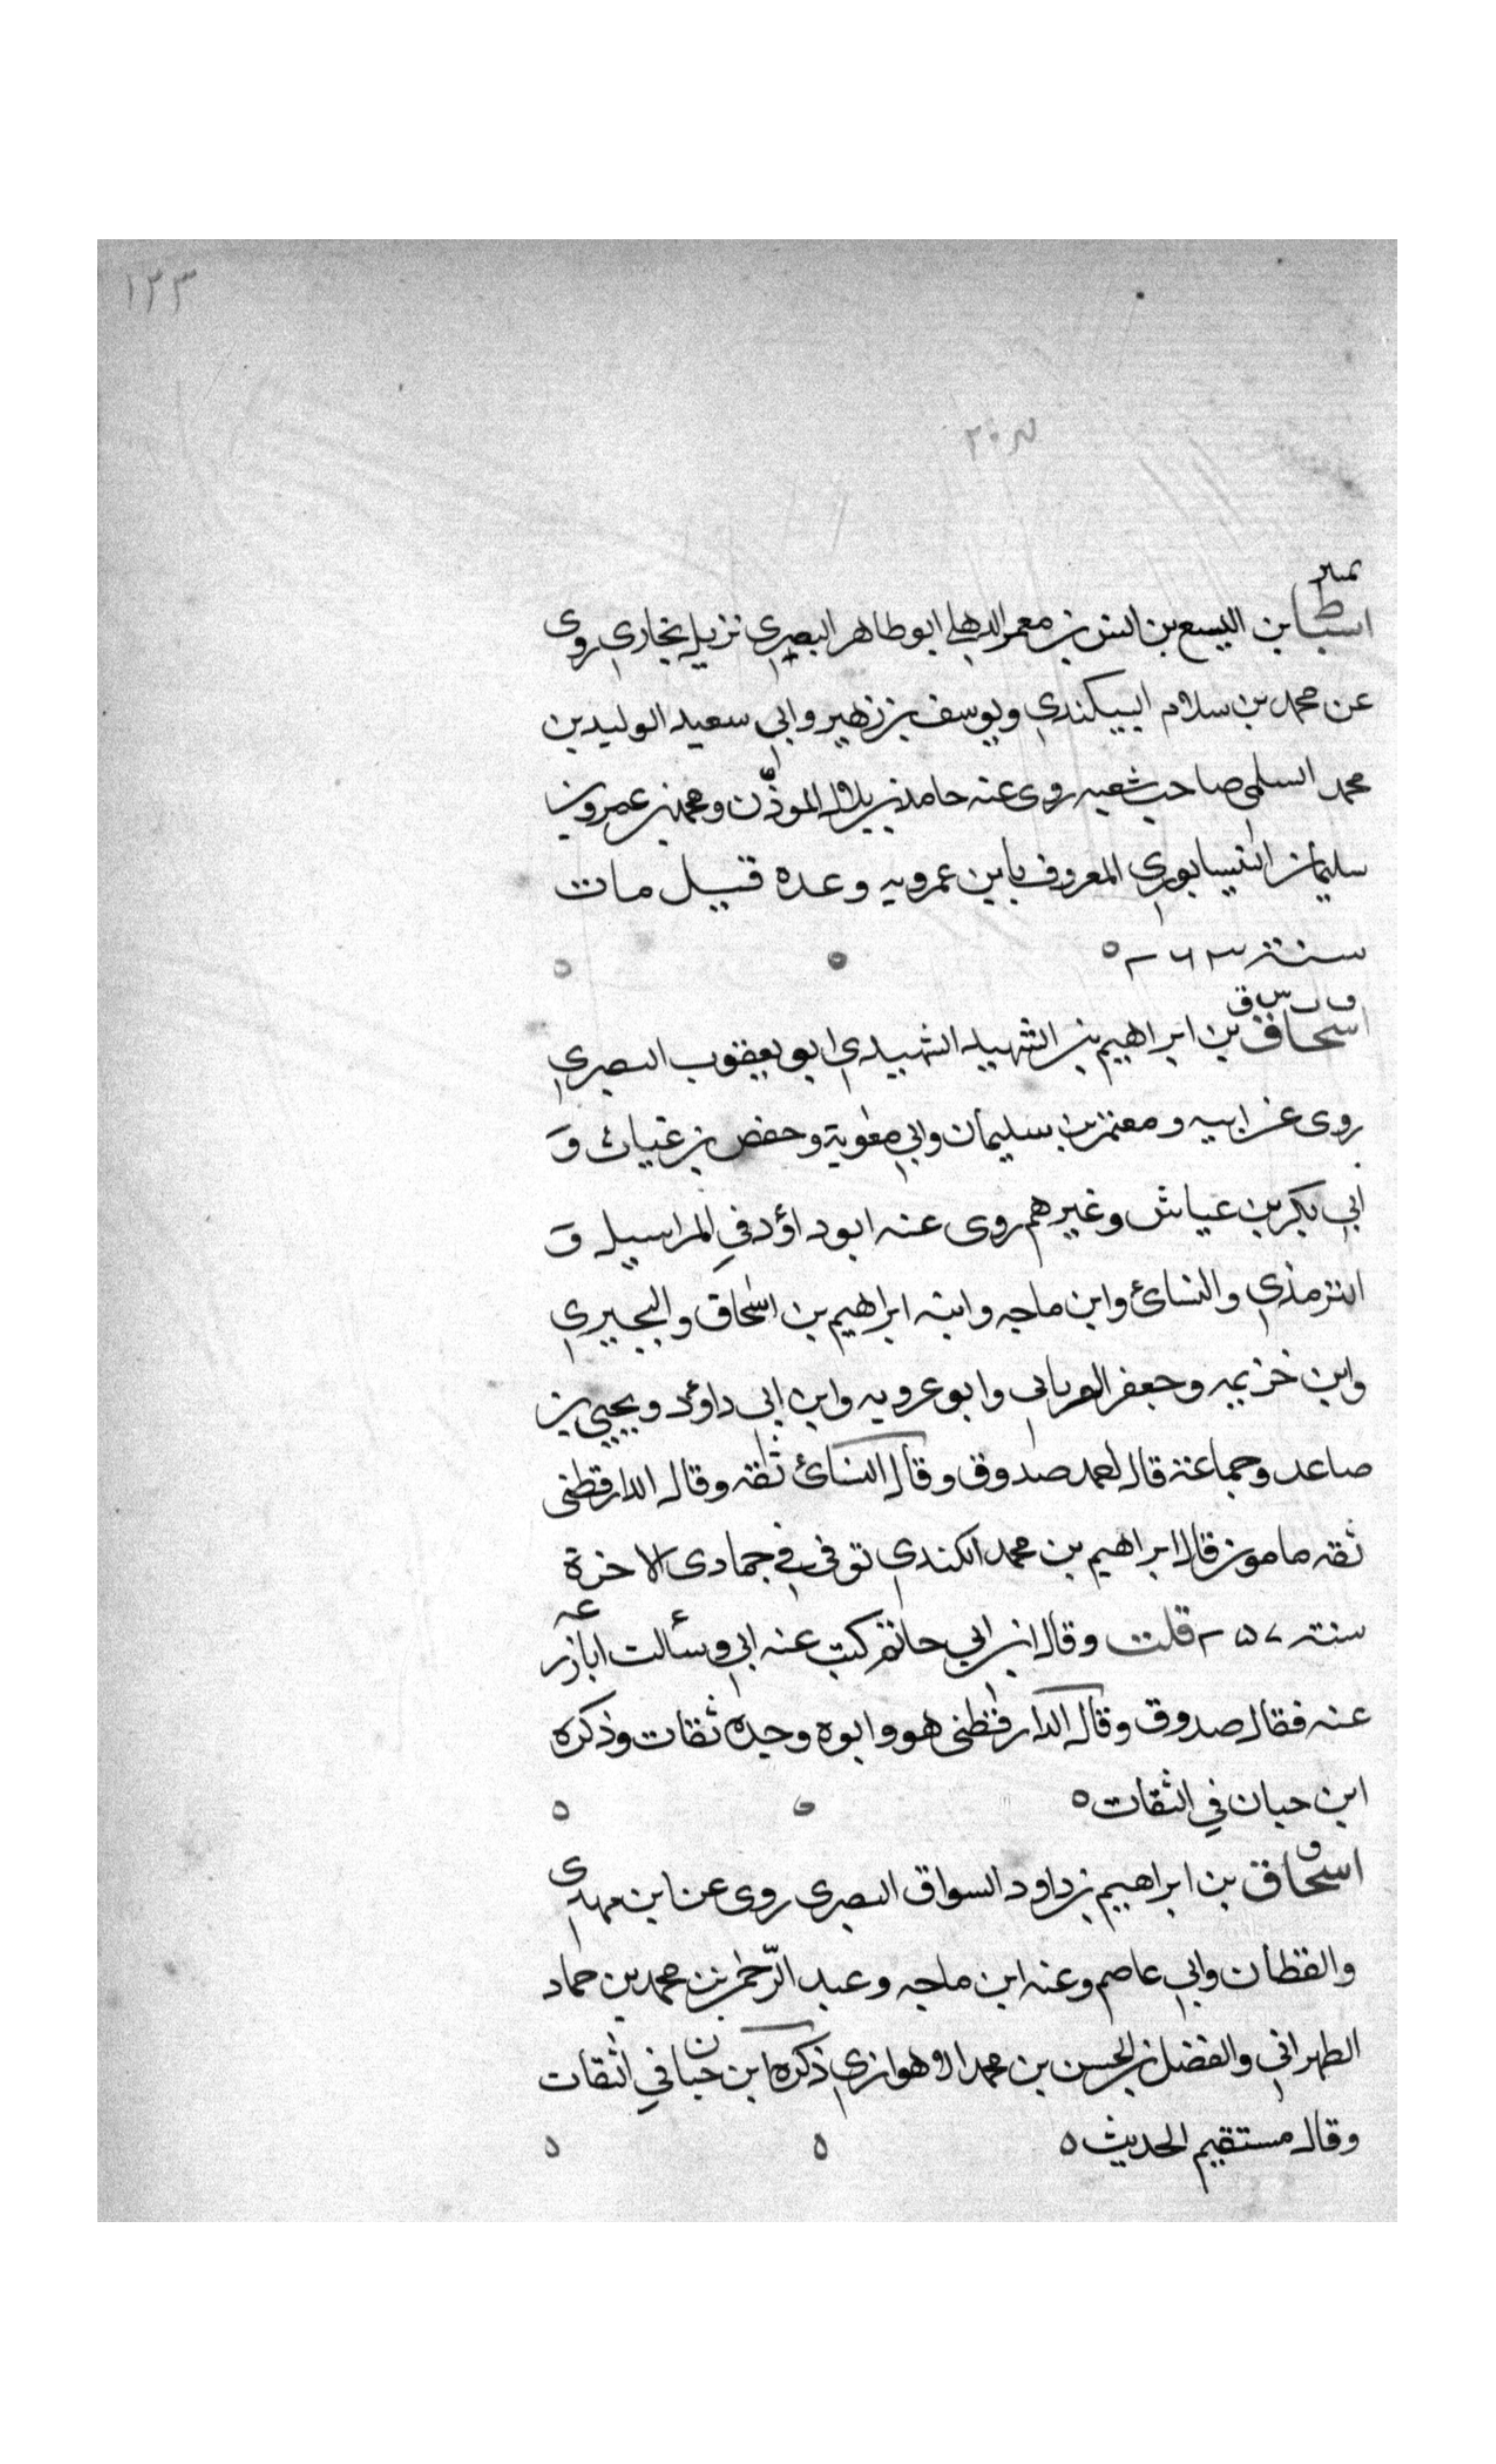 ١٢٣
تميىز
اسباط بن اليسع بن انس بن معمر الذهلي ابو طاهر البصري نزيل بخاري روى
عن محمد بن سلام البيكندي ويوسف بن زهير وابي سعيد الوليد بن
محمد السلمي صاحب شعبه روى عنه حامد بن بلال الموذّن ومحمد بن عمرو بن
سليمان النيسابوري المعروف بابن عمرويه وعده قيل مات
سنة ٢٦٣ ه
مد ت س ق
اسحاق بن ابراهيم بن الشهيد الشهيدي ابو يعقوب البصري
روى عن ابيه ومعتمر بن سليمان وابي معوية وحفص بن غياث و
ابي بكر بن عياش وغيرهم روى عنه ابو داؤد في المراسيل و
الترمذي والنسائ وابن ماجه وابنه ابراهيم بن اسحاق والبجيري
وابن خزيمه وجعفر الفريابى وابو عروبه وابن ابى داؤد ويحيى بن
صاعد وجماعة قال احمد صدوق وقال النسائ ثقه وقال الدارقطنى
ثقه مامون قال ابراهيم بن محمد الكندي توفى في جمادى الاخرة
سنة ٢٥٧ قلت وقال ابن ابي حاتم كتب عنه ابي وسألت ابا زرعه
عنه فقال صدوق وقال الدارقطنى هو وابوه وجده ثقات وذكره
ابن حبان في الثقات ه
ق
اسحاق بن ابراهيم بن داود السواق البصرى روى عن ابن مهدى
والقطان وابي عاصم وعنه ابن ماجه وعبد الرّحمٰن بن محمد بن حماد
الطهراني والفضل بن الحسن بن محمد الاهوازي ذكره ابن حبان في الثقات
وقال مستقيم الحديث ه